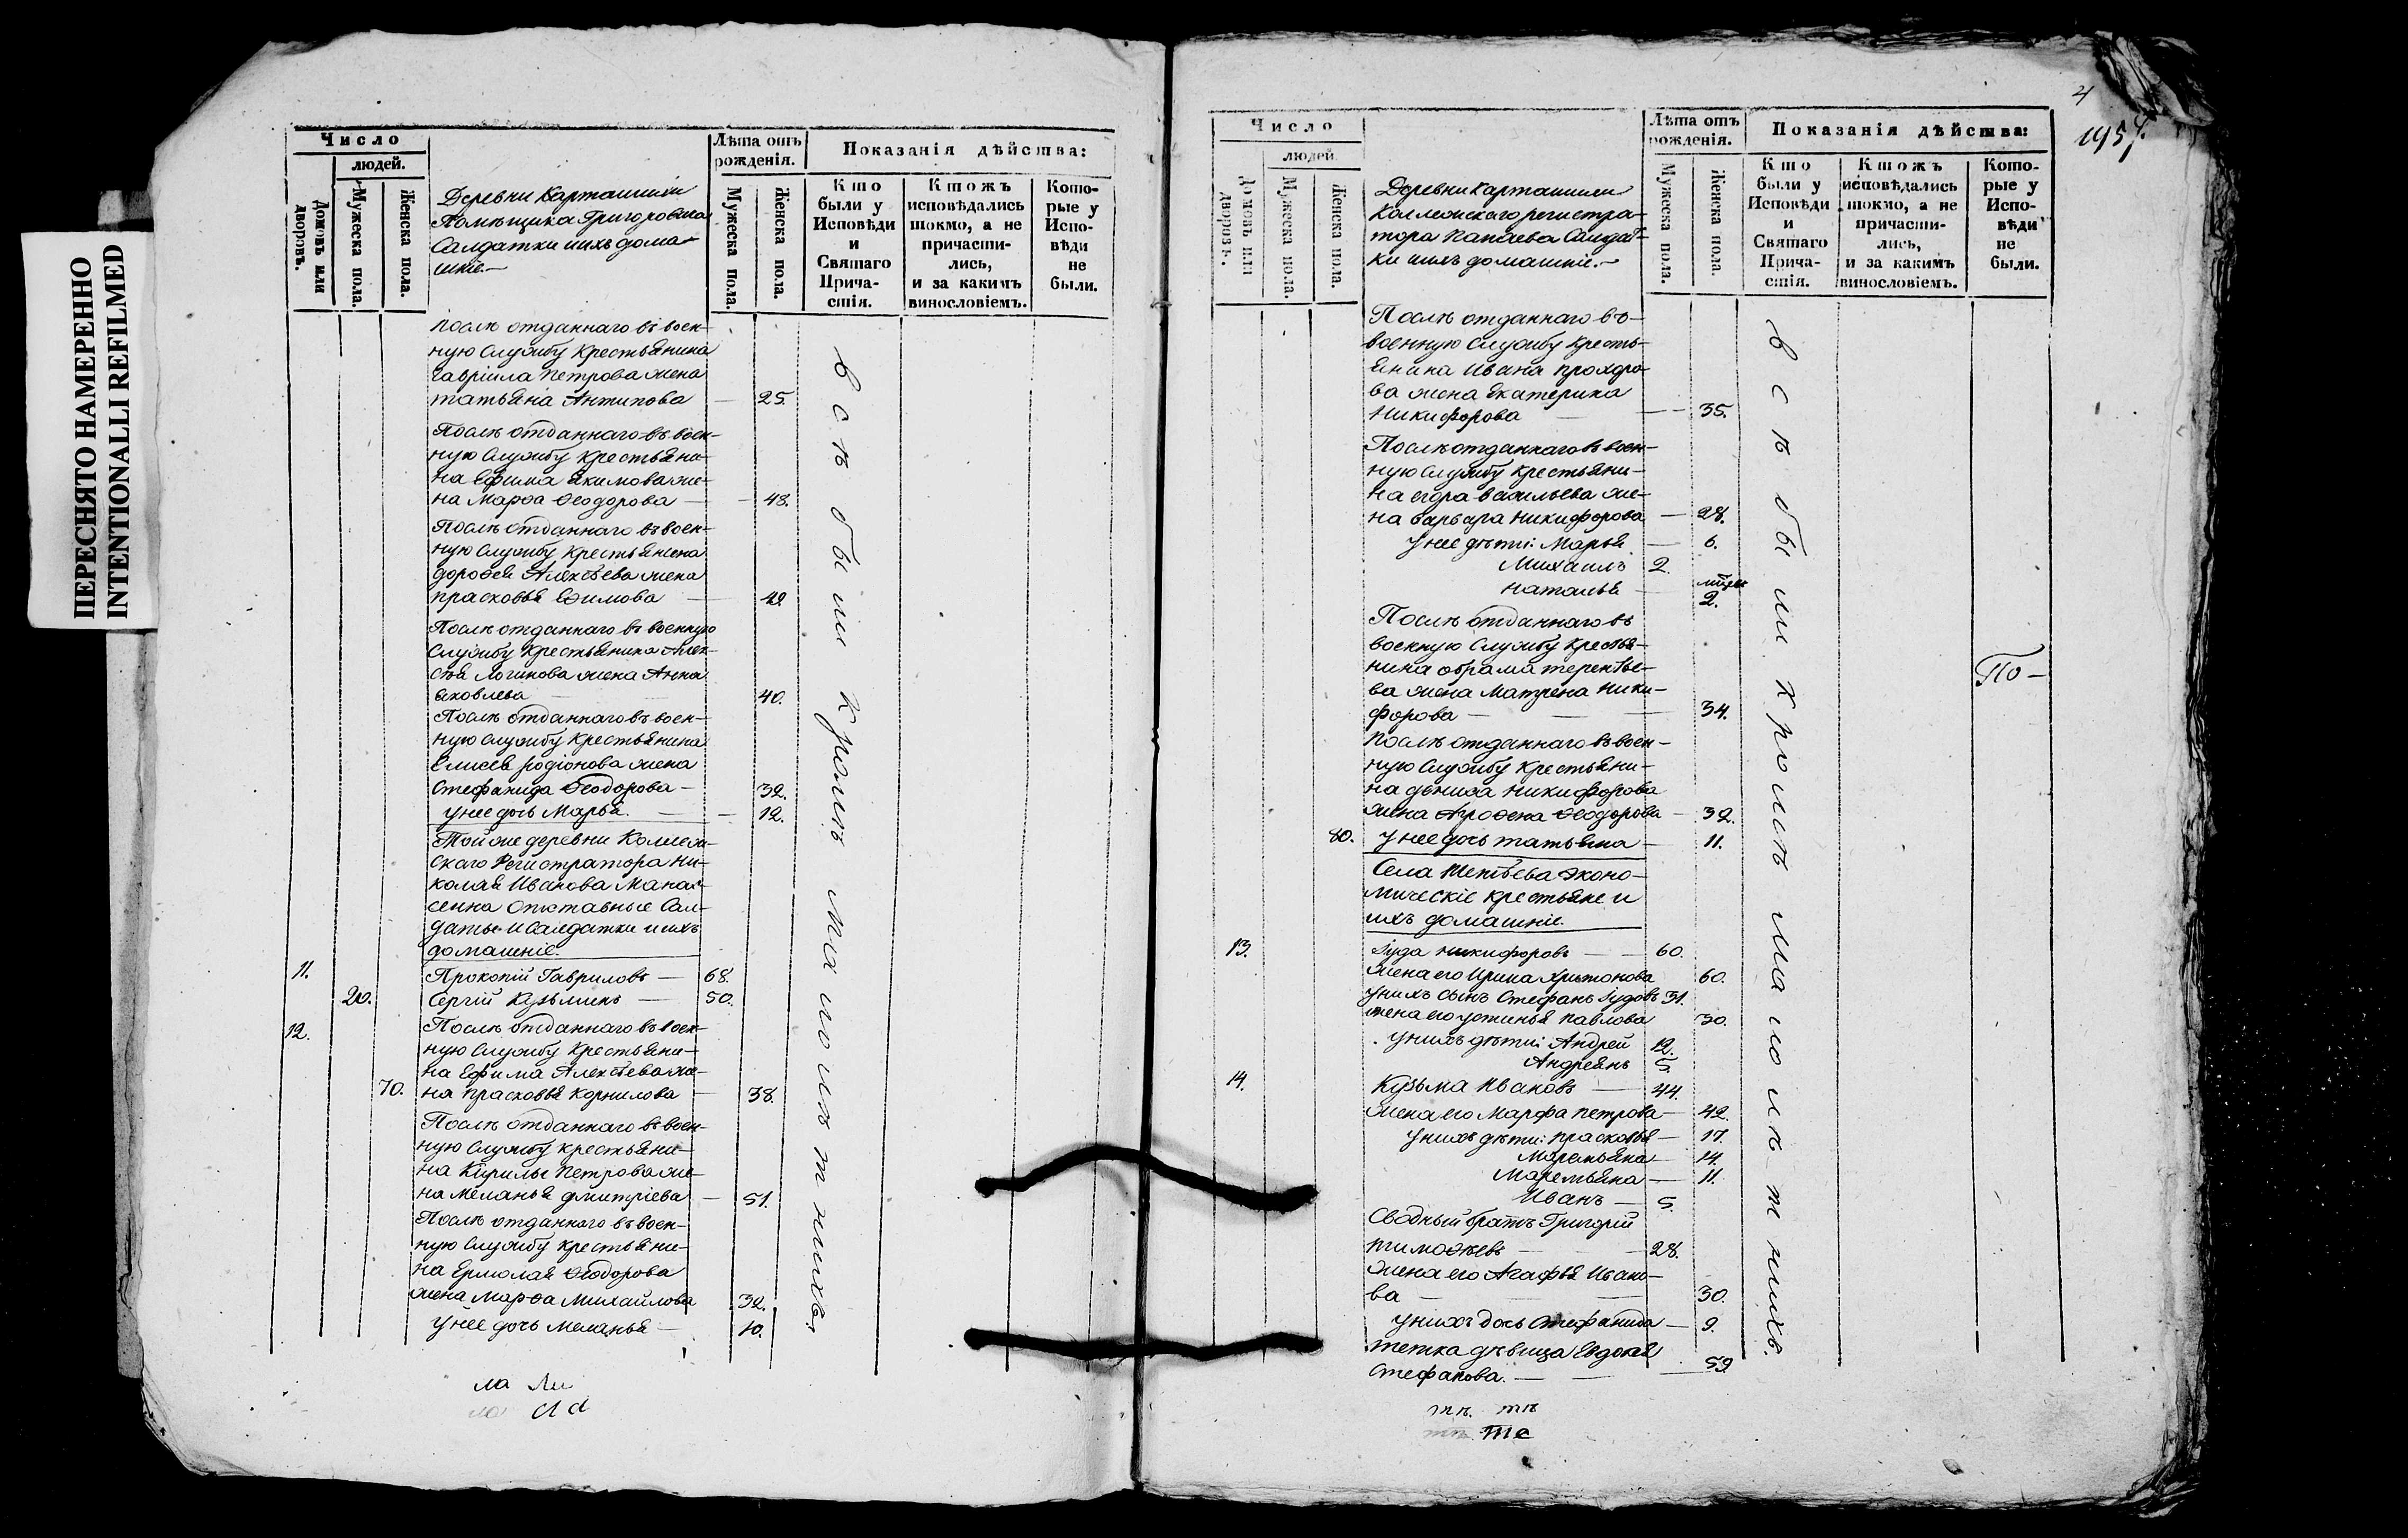 ПЕРЕСНЯТО НАМЕРЕННО
INTENTIONALLI REFILMED
Число
людей.
Домовъ или дворовъ.
Мужеска пола.
Женска пола.
Деревни Карташихи
Помѣщика Григоровича
Салдатки ихъ дома-
шніе.—
Лѣта отъ рожденія.
Мужеска пола.
Женска пола.
Показанія дѣйства:
Кто были у Исповѣди и Святаго Прича-стія.
Ктожъ исповѣдались токмо, а не причасти-лись, и за какимъ винословіемъ.
Кото-рые у Испо-вѣди не были.
Послѣ отданнаго въ воен-
ную Службу Крестьянина
Гавріила Петрова жена
татьяна Антипова — 25.
Послѣ отданнаго въ воен-
ную Службу Крестьяни-
на Ефима Якимова же-
на Марѳа Ѳеодорова — 48.
Послѣ отданнаго въ воен-
ную Службу Крестьянина
дороѳея Алексѣева жена
прасковья Ефимова — 49.
Послѣ отданнаго въ военную
Службу Крестьянина Алек-
сѣя Логинова жена Анна
яковлева 40.
Послѣ отданнаго въ воен-
ную Службу Крестьянина
Елисея родіонова жена
Стефанида Ѳеодорова — 32.
у нее дочь Марья. — 12.
Той же деревни Коллеж-
скаго Регистратора Ни-
колая Иванова
Отставные Сал-
даты и Салдатки и ихъ
домашніе.
11. Прокопій Гавриловъ — 68.
20. Сергій Кузьминъ — 50.
12. Послѣ отданнаго въ воен-
ную Службу Крестьяни-
на Ефима Алексѣева же-
70. на прасковья Корнилова — 38.
Послѣ отданнаго въ воен-
ную Службу крестьяни-
на Кирилы Петрова же-
на меланья дмитріева — 51.
Послѣ отданнаго въ воен-
ную Службу крестьяни-
на Ермолая Ѳеодорова
жена марѳа Михайлова 32.
у нее дочь меланья — 10.
всѣ были кромѣ малолѣтнихъ.
4
Число
людей.
Домовъ или дворовъ.
Мужеска пола.
Женска пола.
Деревни Карташихи
Коллежскаго регистра-
тора Салдат-
ки ихъ домашніе.—
Лѣта отъ рожденія.
Мужеска пола.
Женска пола.
Показанія дѣйства:
Кто были у Исповѣди и Святаго Прича-стія.
Ктожъ исповѣдались токмо, а не причасти-лись, и за какимъ винословіемъ.
Кото-рые у Испо-вѣди не были.
Послѣ отданнаго въ
военную Службу кресть-
янина Ивана прохоро-
ва жена Екатерина
Никифорова — 35.
Послѣ отданнаго въ воен-
ную Службу крестьяни-
на егора васильева же-
на варвара никифорова — 28.
у нее дѣти: Марья — 6.
Михаилъ 2.
наталья — 2.
Послѣ отданнаго въ
военную Службу крестья-
нина абрама терентье-
ва жена Матрена ники-
форова — 34.
послѣ отданнаго въ воен-
ную Службу Крестьяни-
на дениса никифорова
жена Ѳеодорова — 32.
80. у нее дочь татьяна — 11.
Села Эконо-
мическіе крестьяне и
ихъ домашніе.
13. Іуда никифоровъ — 60.
жена его Ирина 60.
у нихъ сынъ Стефанъ Іудовъ 31.
жена его устинья павлова 30.
у нихъ дѣти: Андрей 12.
Андреянъ 5.
14. Кузьма Ивановъ — 44.
жена его Марфа петрова — 42.
у нихъ дѣти: прасковья — 17.
14.
Маремьяна — 11.
Иванъ — 5.
Сводный братъ Григорій
тимоѳеевъ — 28.
жена его Агафья Ивано-
ва — 30.
у нихъ дочь Стефанида — 9.
тетка дѣвица Евдокея
Стефанова. — 59.
всѣ были кромѣ малолѣтнихъ.
По-